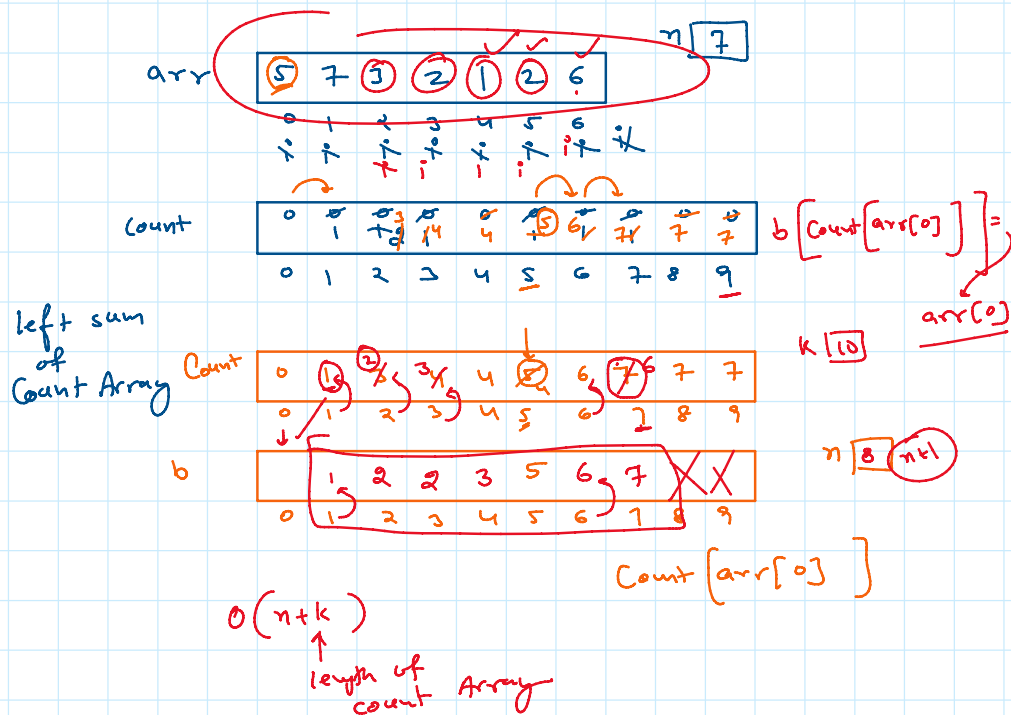 n 7
arr 5 7 3 2 1 2 6
0 1 2 3 4 5 6
i i i i i i i i
i i i i i
Count 0 0 0 0 0 0 0 0 0 0
1 1 2 3 1 4 4 1 5 6 1 7 1 7 7
0 1 2 3 4 5 6 7 8 9
b[Count[arr[0]]] =
arr[0]
left sum
of
Count Array
K 10
Count 0 1 2 3 3 4 4 5 4 6 7 6 7 7
0 1 2 3 4 5 6 7 8 9
b 1 2 2 3 5 6 7 X X
0 1 2 3 4 5 6 7 8 9
n 8 n+1
Count[arr[0]]
O(n+k)
length of
count Array